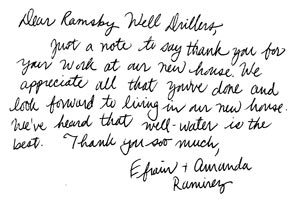 Dear Ramsby Well Drillers,
Just a note to say thank you for
your work at our new house. We
appreciate all that you've done and
look forward to living in our new house.
We've heard that well-water is the
best. Thank you so much,
Efrain + Amanda
Ramirez